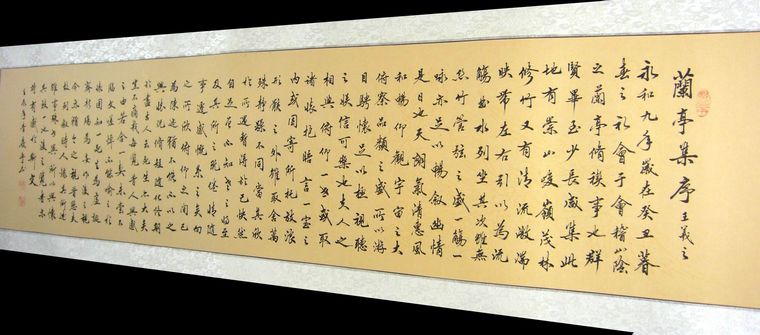 蘭亭集序 王羲之
永和九年歲在癸丑暮
春之初會于會稽山陰
之蘭亭脩禊事也群
賢畢至少長咸集此
地有崇山峻嶺茂林
修竹又有清流激湍
映帶左右引以為流
觴曲水列坐其次雖無
絲竹管弦之盛一觴一
咏亦足以暢敘幽情
是日也天朗氣清惠風
和暢仰觀宇宙之大
俯察品類之盛所以游
目騁懷足以極視聽
之娛信可樂也夫人之
相與俯仰一世或取
諸懷抱晤言一室之
內或因寄所托放浪
形骸之外雖取舍萬
殊靜躁不同當其欣
於所遇暫得於己快然
自足不知老之將至
及其所之既倦情隨
事遷感慨系之矣向
之所欣俯仰之間已
為陳迹猶不能不以之
興懷況脩短隨化終期
於盡古人云死生亦大矣
豈不痛哉每覽昔人興感
之由若合一契未嘗不
臨文嗟悼不能喻之於
懷固知一死生為虛誕
齊彭殤為妄作後之視
今亦猶今之視昔悲夫
故列敘時人錄其所述
雖世殊事異所以興懷
其致一也後之覽者亦
將有感於斯文